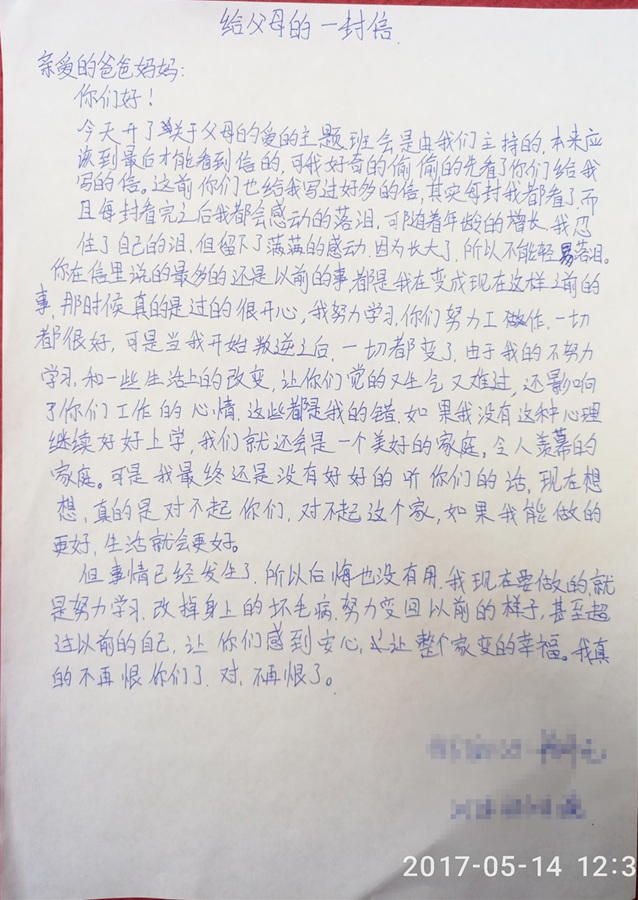 给父母的一封信
亲爱的爸爸妈妈:
你们好!
今天开了关于父母的爱的主题班会是由我们主持的,本来应
该到最后才能看到信的,可我好奇的偷偷的先看了你们给我
写的信。这前你们也给我写过好多的信,其实每封我都看了,而
且每封看完之后我都会感动的落泪,可随着年龄的增长,我忍
住了自己的泪,但留下了满满的感动,因为长大了,所以不能轻易落泪。
你在信里说的最多的还是以前的事,都是我在变成现在这样之前的
事,那时候真的是过的很开心,我努力学习,你们努力工作,一切
都很好,可是当我开始叛逆之后,一切都变了,由于我的不努力
学习,和一些生活上的改变,让你们觉的又生气又难过,还影响
了你们工作的心情,这些都是我的错,如果我没有这种心理
继续好好上学,我们就还会是一个美好的家庭,令人羡慕的
家庭。可是我最终还是没有好好的听你们的话,现在想
想,真的是对不起你们,对不起这个家,如果我能做的
更好,生活就会更好。
但事情已经发生了,所以后悔也没有用,我现在要做的,就
是努力学习,改掉身上的坏毛病,努力变回以前的样子,甚至超
过以前的自己,让你们感到安心,让整个家变的幸福。我真
的不再恨你们了,对,不再恨了。
2017-05-14 12:3